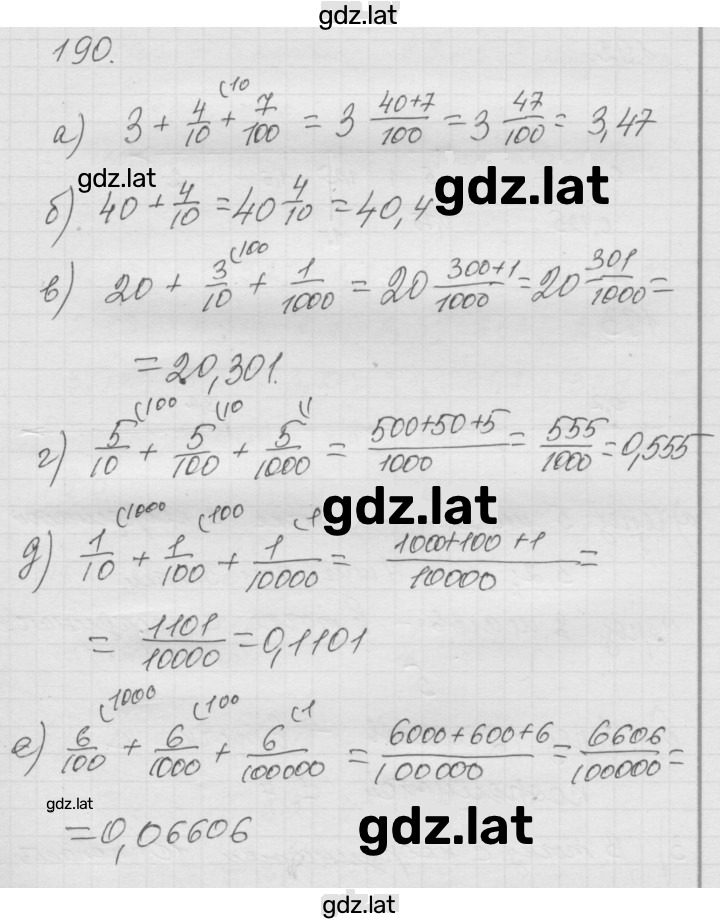 gdz.lat
190.
а) 3 + 4/10 (10 + 7/100 = 3 40+7/100 = 3 47/100 = 3,47
gdz.lat
gdz.lat
б) 40 + 4/10 = 40 4/10 = 40,4
в) 20 + 3/10 (100 + 1/1000 = 20 300+1/1000 = 20 301/1000 =
= 20,301.
г) 5/10 (100 + 5/100 (10 + 5/1000 (1 = 500+50+5/1000 = 555/1000 = 0,555
gdz.lat
д) 1/10 (1000 + 1/100 (100 + 1/10000 (1 = 1000+100+1/10000 =
= 1101/10000 = 0,1101
е) 6/100 (1000 + 6/1000 (100 + 6/100000 (1 = 6000+600+6/100000 = 6606/100000 =
gdz.lat
= 0,06606
gdz.lat
gdz.lat